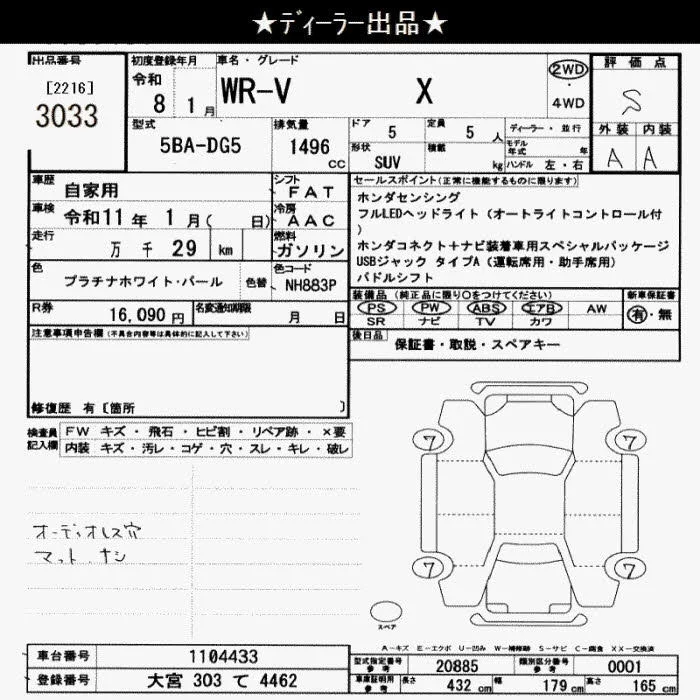 ★ディーラー出品★
出品番号
[2216]
3033
初度登録年月
令和
8 1月
車名・グレード
WR-V X
2WD
・
4WD
評価点
S
外装 内装
A A
型式
5BA-DG5
排気量
1496
cc
ドア
5
定員
5 人
形状
SUV
積載
kg
ディーラー・並行
モデル
年式 年
ハンドル 左・右
車歴
自家用
シフト
FAT
車検
令和11年 1月( 日)
冷房
AAC
走行
万 千 29 km
燃料
ガソリン
色
プラチナホワイト・パール
色替
色コード
NH883P
R券
16,090円
名変通知期限
月 日
セールスポイント(正常に機能するものに限ります)
ホンダセンシング
フルLEDヘッドライト(オートライトコントロール付
)
ホンダコネクト+ナビ装着車用スペシャルパッケージ
USBジャック タイプA(運転席用・助手席用)
パドルシフト
装備品(純正品に限り○をつけてください)
PS PW ABS エアB AW
SR ナビ TV カワ
新車保証書
有・無
後日品
保証書・取説・スペアキー
注意事項申告欄(不具合内容等は具体的に記入して下さい)
修復歴 有〔箇所 〕
検査員
記入欄
FW キズ・飛石・ヒビ割・リペア跡・×要
内装 キズ・汚レ・コゲ・穴・スレ・キレ・破レ
オーディオレス穴
マット ナシ
7 7
7 7
スペア
A-キズ E-エクボ U-凹み W-補修跡 S-サビ C-腐食 XX-交換済
車台番号
1104433
登録番号
大宮 303 て 4462
型式指定番号
参考
20885
類別区分番号
参考
0001
車庫証明用
参考
長さ 432 cm 幅 179 cm 高さ 165 cm